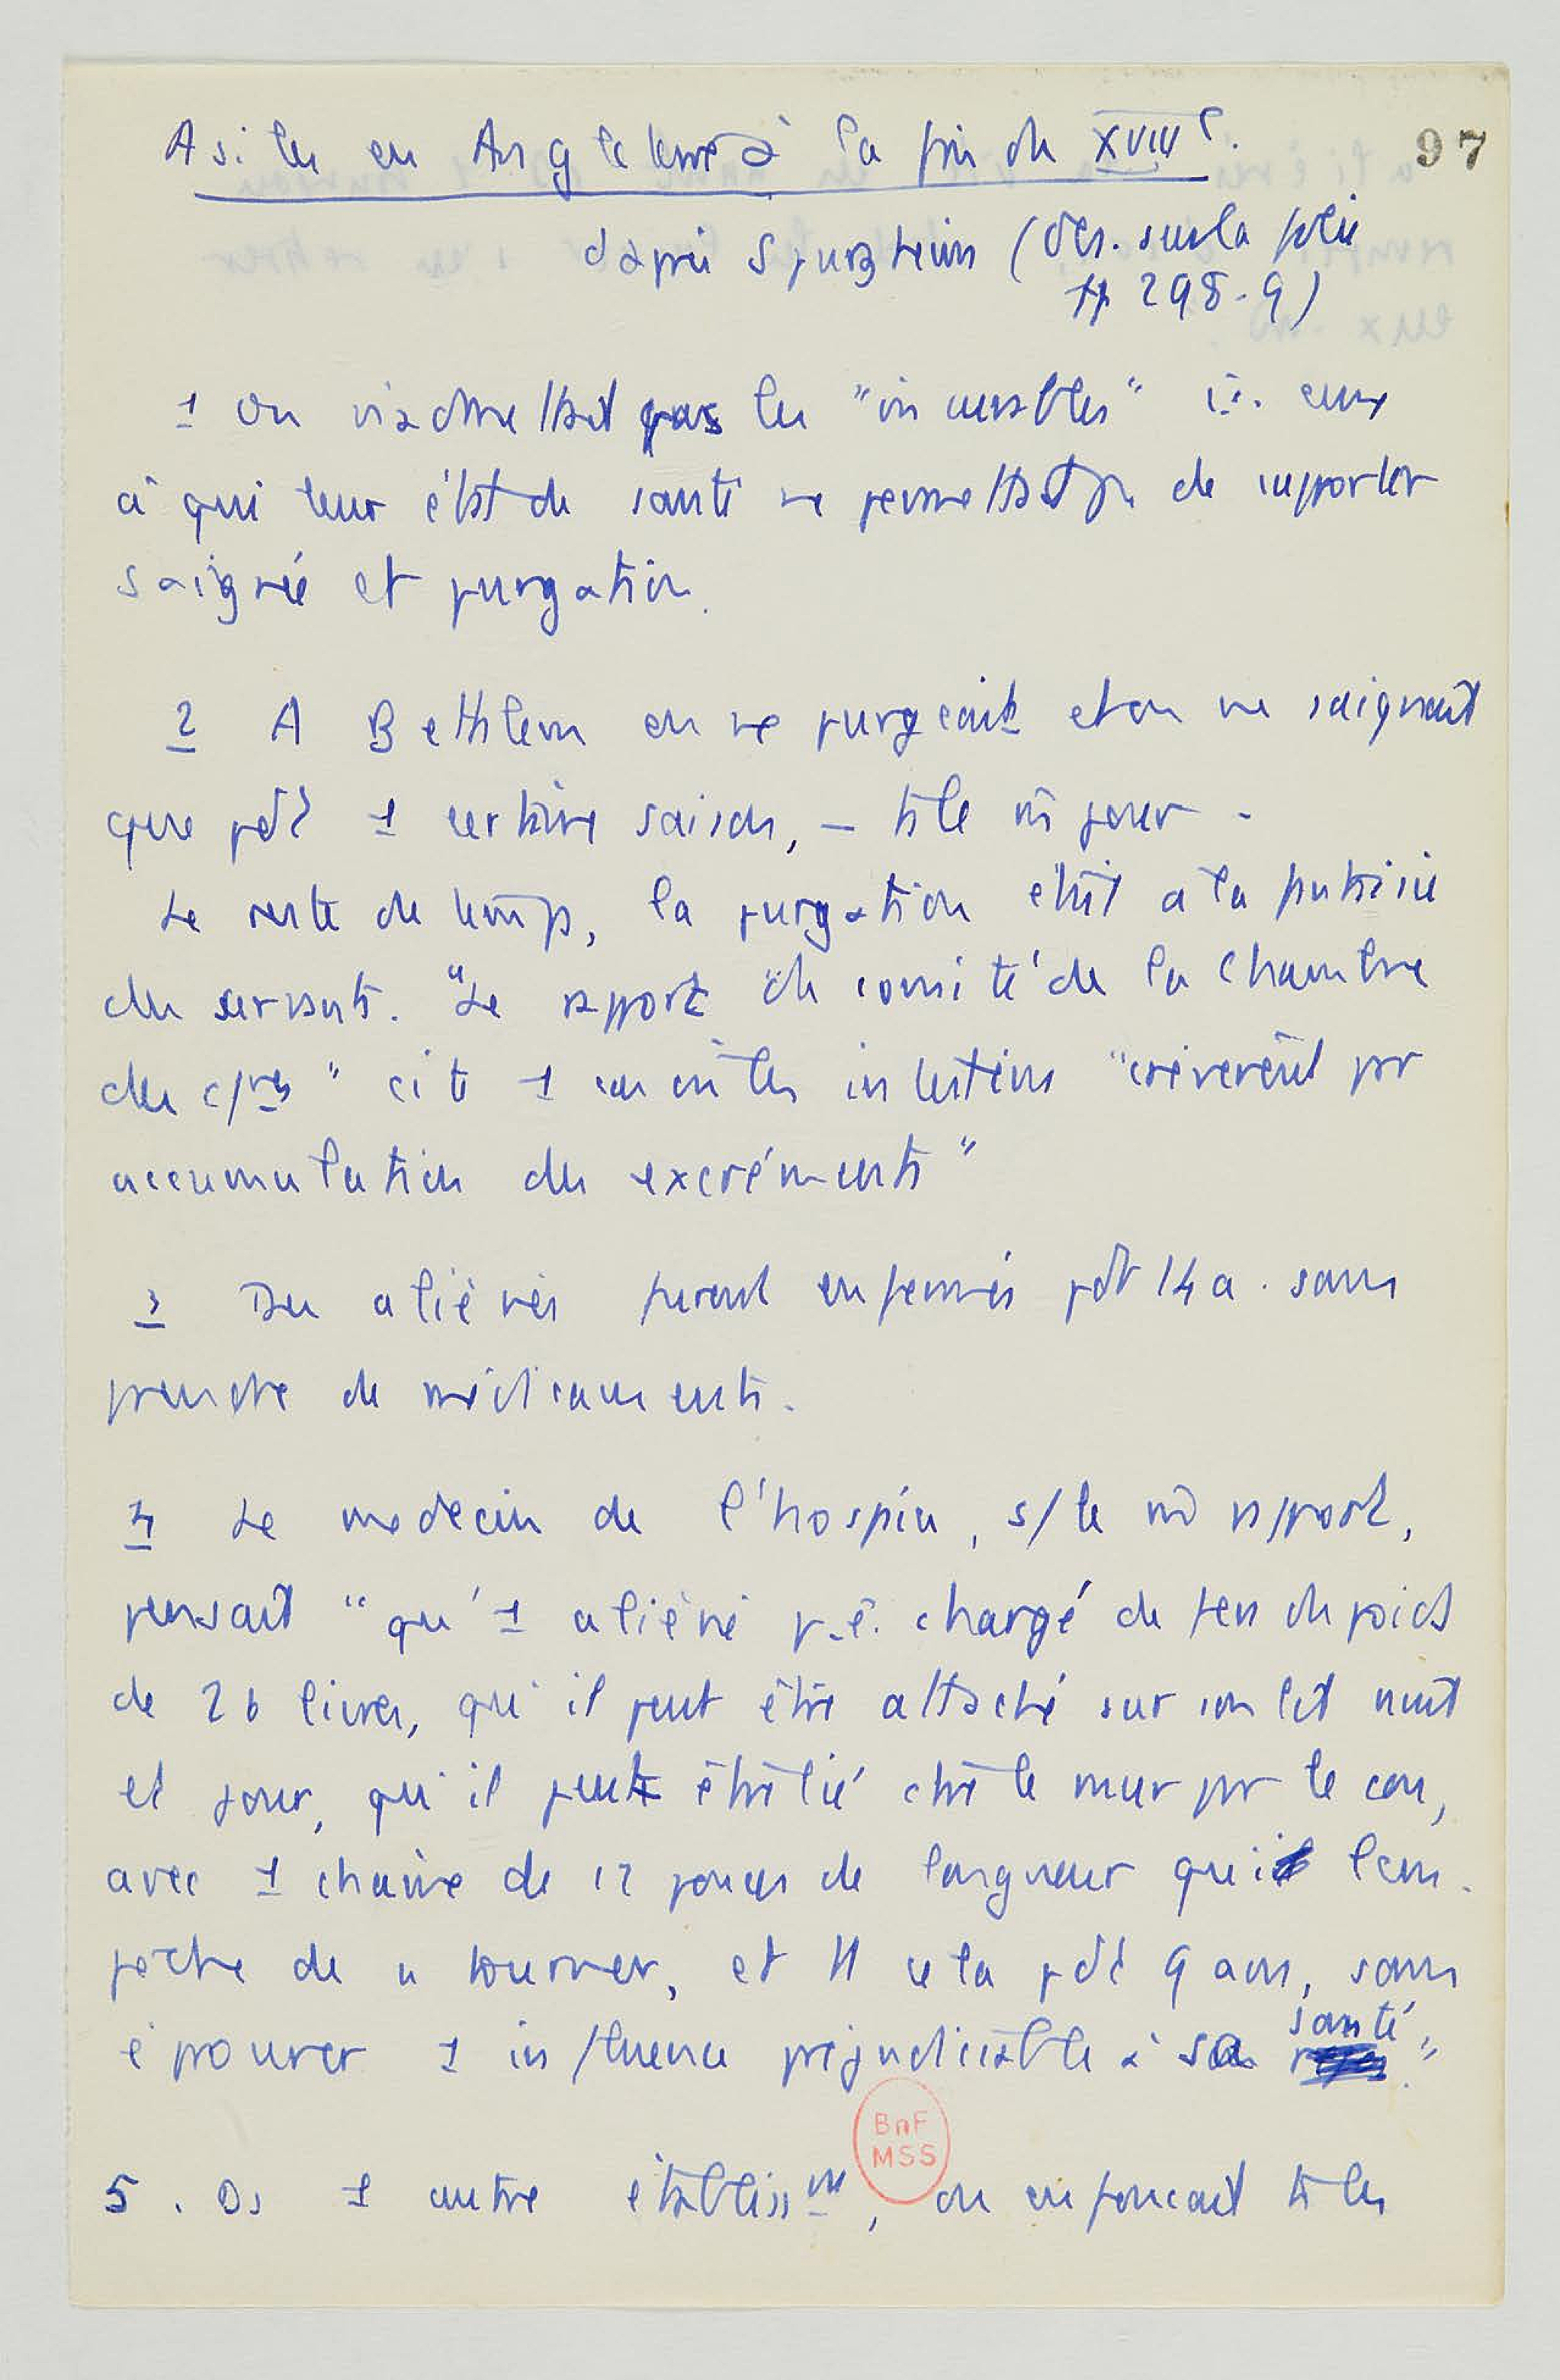 Asiles en Angleterre à la fin du XVIIIe.
97
d'après Spurzheim (Obs. sur la folie
pp 298-9)
1 On n'admettait pas les "incurables" i.e. ceux
à qui leur état de santé ne permettait pas de supporter
saignée et purgation.
2 A Bethleem on ne purgeait et on ne saignait
que pdt 1 certaine saison, – tts le m̂ jour -
Le reste du temps, la purgation était à la fantaisie
des servants. "Le rapport du comité de la Chambre
des c/nes" cite 1 cas où les intestins "crevèrent par
accumulation des excréments"
3 Des aliénés furent enfermés pdt 14 a. sans
prendre de médicaments.
4 Le medecin de l'hospice, s/ le m̂ rapport,
pensait "qu'1 aliéné p.ê. chargé de fers du poids
de 26 livres, qu'il peut être attaché sur son lit nuit
et jour, qu'il peut être lié ctre le mur par le cou,
avec 1 chaine de 12 pouces de longueur qui l'em-
pêche de se tourner, et tt cela pdt 9 ans, sans
éprouver 1 influence préjudiciable à sa santé."
BnF
MSS
5. Ds 1 autre établissmt, on enfoncait ts les